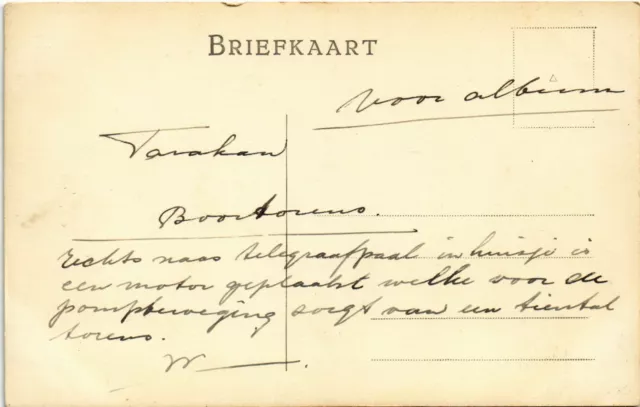 BRIEFKAART
voor album
Tarakan
Boortorens.
rechts naas telegraafpaal in huisje is
een motor geplaatst welke voor de
pompbeweging zorgt van een tiental
torens.
W